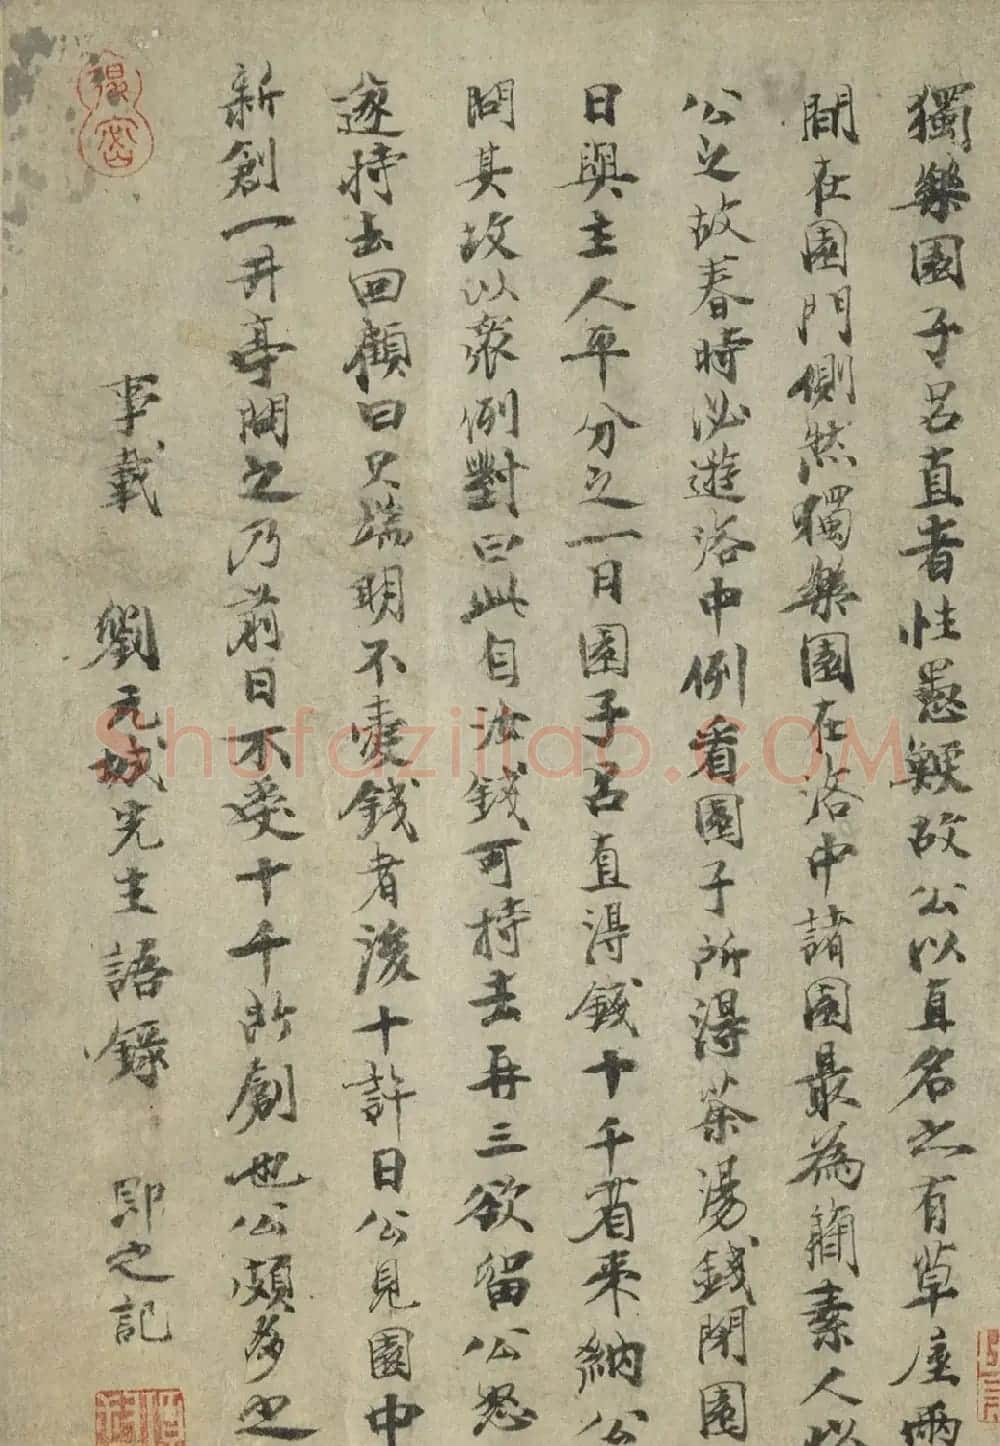 獨樂園子呂直者性愚鯁故公以直名之有草屋兩
間在園門側然獨樂園在洛中諸園最為簡素人以
公之故春時必遊洛中例看園子所得茶湯錢閉園
日與主人平分之一日園子呂直得錢十千省來納公
問其故以眾例對曰此自汝錢可持去再三欲留公怒
遂持去回顧曰只端明不愛錢者後十許日公見園中
新創一井亭問之乃前日不受十千所創也公頗多之
事載 劉元城先生語錄 即之記
Shufaziliao.COM